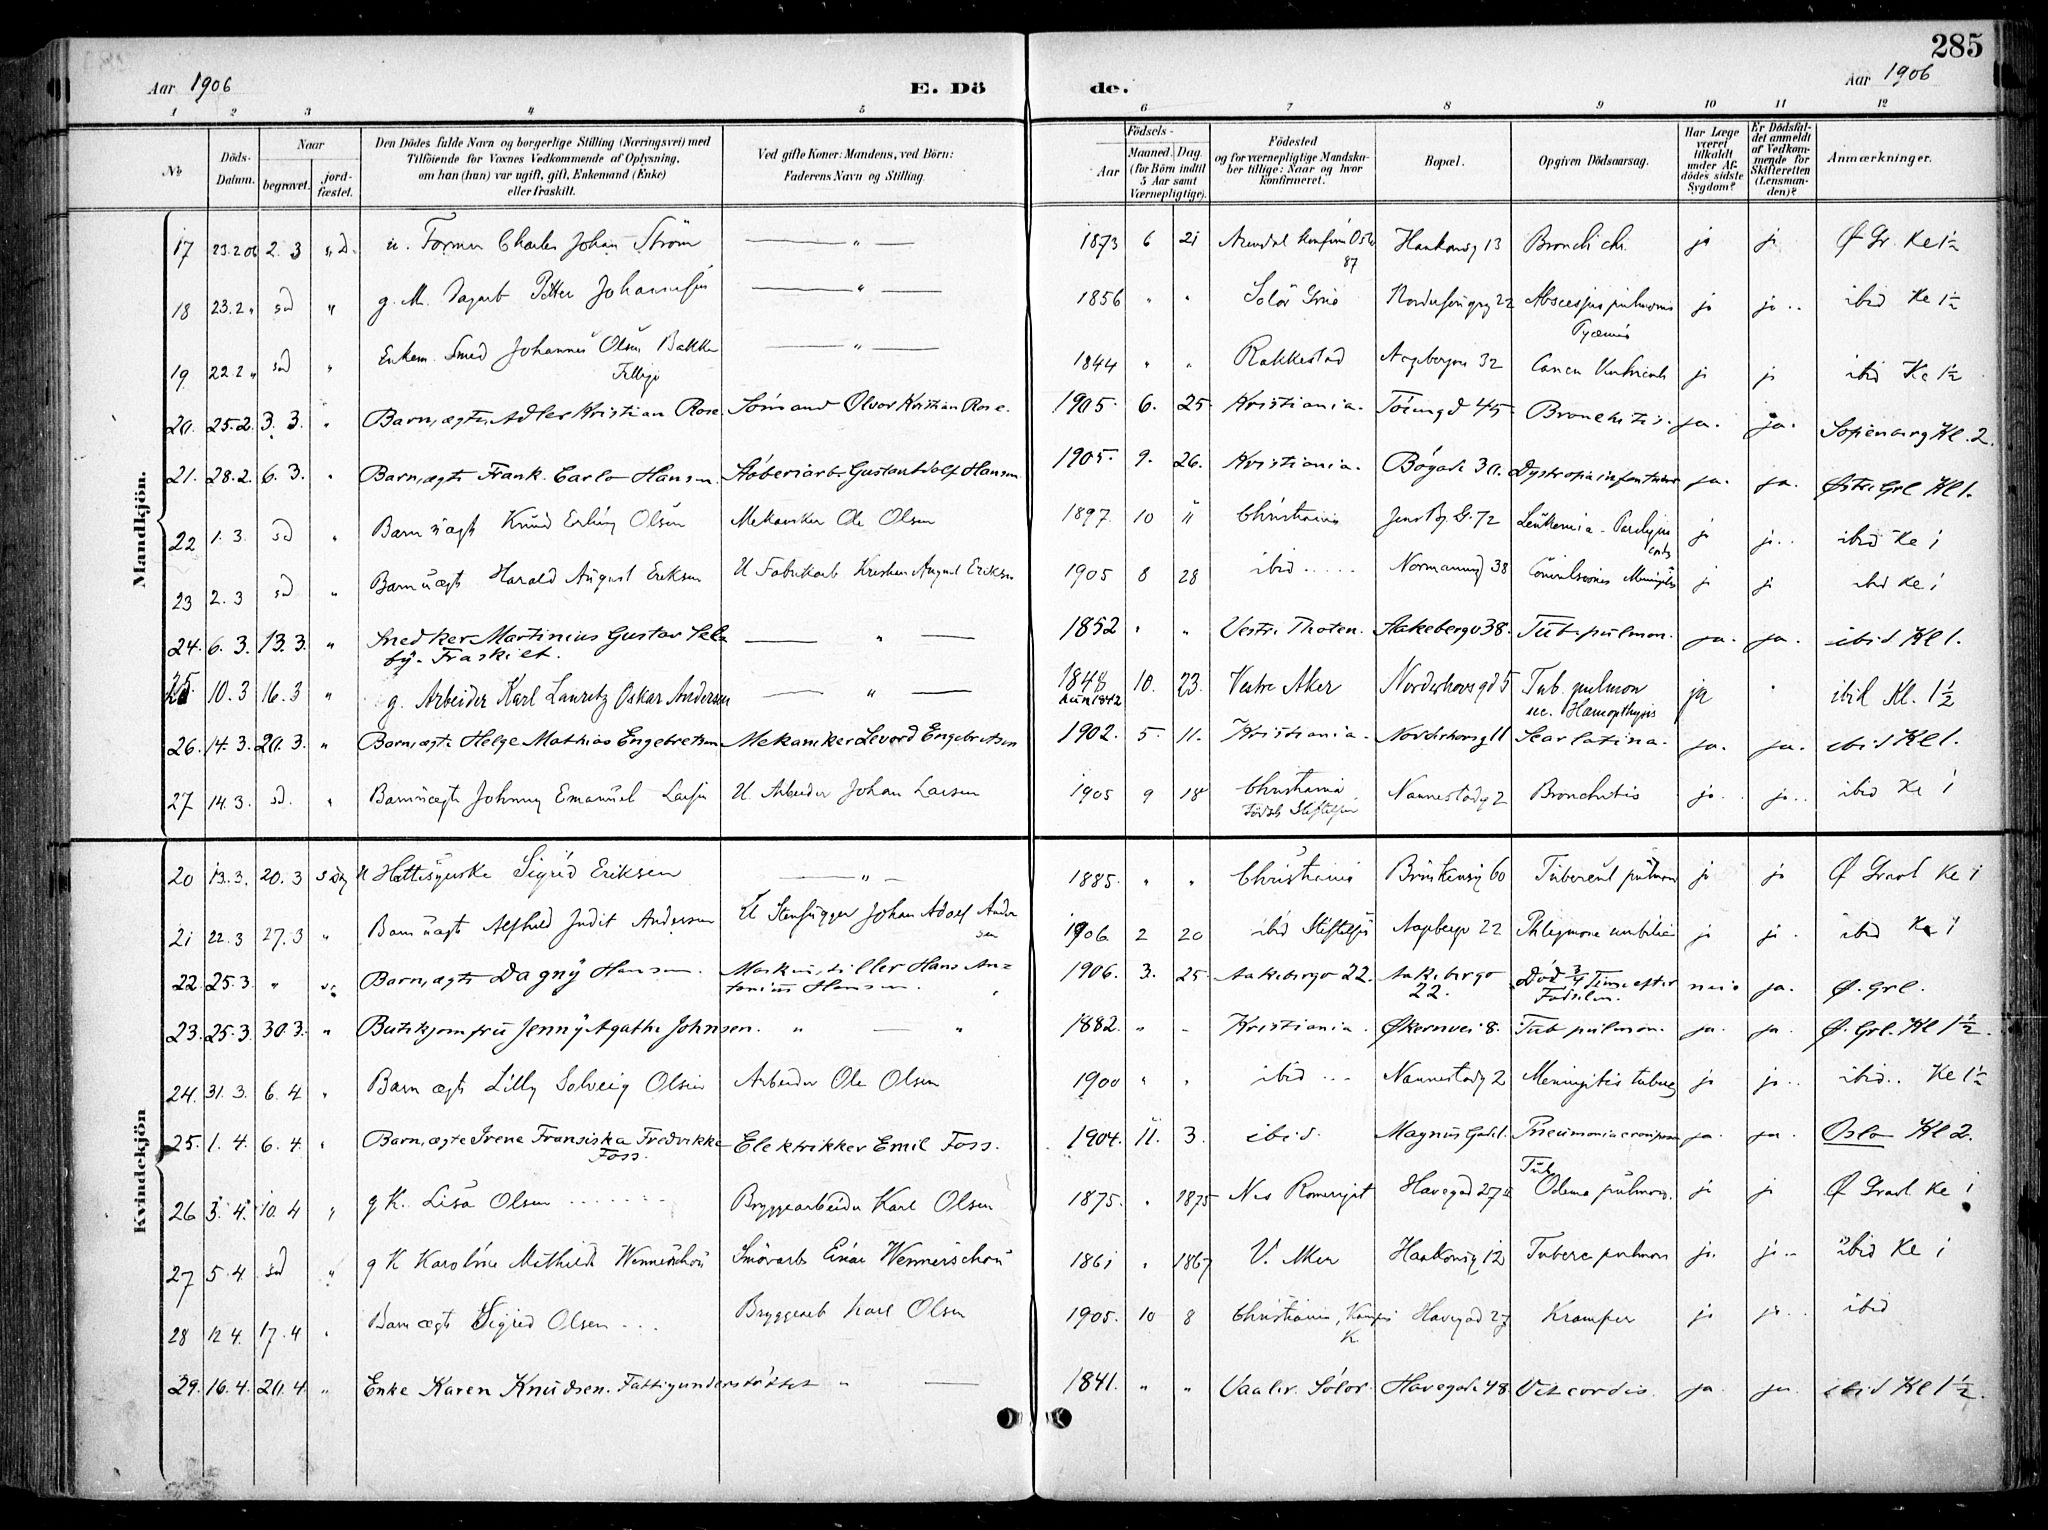 285
Aar 1906 E. Dö de. Aar 1906
1 2 3 4 5 6 7 8 9 10 11 12
No
Döds-Datum.
Naar
begravet.
jord-fæstet.
Den Dödes fulde Navn og borgerlige Stilling (Næringsvei) med
Tilföiende for Voxnes Vedkommende af Oplysning,
om han (hun) var ugift, gift, Enkemand (Enke)
eller fraskilt.
Ved gifte Koner: Mandens, ved Börn:
Faderens Navn og Stilling.
Födsels-
Aar
Maaned. Dag.
(for Börn indtil
5 Aar samt
Værnepligtige).
Födested
og for værnepligtige Mandska-
ber tillige: Naar og hvor
konfirmeret.
Bopæl.
Opgiven Dödsaarsag.
Har Læge
været
tilkaldt
under Af-
dödes sidste
Sygdom?
Er Dödsfal-
det anmeldt
af Vedkom-
mende for
Skifteretten
(Lensman-
den)?
Anmærkninger.
Mandkjön.
17 23.2.06 2.3 sd. u. Former Charles Johan Ström — " — 1873 6 21 Arendal konfirm Oslo 87 Haukonsg 13 Bronchit chr. ja ja Ø Gr. Kl 1½
18 23.2 " sd " g. M. Dagarb Petter Johannesen — " — 1856 " " Solör Grue Nordre 22 Abscessus pulmonis Pyæmia ja ja .. ibid Kl 1½
19 22.2 " sd " Enkem. Smed Johannes Olsen Bakke — " — 1844 " " Rakkestad Aagebergvn 32 Cancer Ventriculi ja ja ibid Kl 1½
20. 25.2. 3.3. " Barn, ægte Adler Kristian Rose. Sömand Olvar Kristian Rose. 1905. 6. 25. Kristiania. Töiengd 45. Bronchitis. ja. ja. Sofienberg Kl. 2.
21. 28.2. 6.3. " Barn, ægte Frank Carlo Hansen. Stöberiarb. Gustav Adolf Hansen 1905. 9. 26. Kristiania. Bögade 30. Dystropia infantum ja. ja. Østre Grl Kl 1.
22 1.3. sd " Barn uægt Knud Erling Olsen Mekaniker Ole Olsen 1897. 10 11 Christiania Jens Bj. G. 72 Leukemia - Paralysis cordis ja ja .. ibid Kl 1
23 2.3 sd " Barn uægt Harald August Eriksen U Fabrikarb. Kristian August Eriksen 1905 8 28 ibid ..... Normannsg 38 Convulsiones Meningitis ja ja ibid Kl 1
24. 6.3. 13.3. " Snedker Martinius Gustav Sel- — " — 1852 " " Vestre Thoten. Aakebergv 38. Tub. pulmon. ja. ja. ibid Kl 1.
by. Fraskilt.
25 10.3 16.3 " g. Arbeider Karl Lauritz Oskar Andersen — " — 1848 10. 23. Vestre Aker Norderhovsgd 5 Tub. pulmon ja " ibid Kl. 1½
sec. Hæmopthysis
26. 14.3. 20.3. " Barn, ægte Helge Mathias Engebretsen Mekaniker Levord Engebretsen 1902. 5. 11. Kristiania. Norderhovsg 11 Scarlatina. ja. ja. ibid Kl 1.
27 14.3. sd. " Barn uægt Johnny Emanuel Larsen U. Arbeider Johan Larsen 1905 9 18 Christiania Föds. Stiftelsen Nannestadg 2 Bronchitis ja. ja .. ibid Kl 1
Kvindekjön
20 13.3. 20.3 sd U Hattesyerske Sigrid Eriksen — " — 1885. " " Christiania Brinkensg 60 Tubercul pulmon ja ja Ø Gravl Kl 1
21 22.3 27.3 " Barn uægt Alfhild Judit Andersen U Stenhugger Johan Adolf Andersen 1906. 2 20 ibid Stiftelsen Aagebergv 22 Phlegmone umbilici ja ja. ibid Kl 1
22. 25.3. " Barn, ægte Dagny Hansen. Maskinstiller Hans An- 1906. 3. 25. Aakebergv 22. Aakebergv Död ¾ Time efter nei ja. Ø. Grl.
tonius Hansen. 22. Födselen.
23. 25.3. 30.3. " Butikjomfru Jenny Agathe Johnsen. " — " 1882. " - Kristiania. Økernvei 8. Tub pulmon. ja. ja. Ø. Grl. Kl 1½.
24. 31.3. 6.4 " Barn ægt Lilly Solveig Olsen Arbeider Ole Olsen 1900 " " ibid ... Nannestadg 2 Meningitis tuberc ja ja .. ibid.. Kl 1½
25. 1.4. 6.4. " Barn, ægte Irene Fransiska Fredrikke Elektrikker Emil Foss. 1904. 11. 3. ibid. Magnus Gd 1. Pneumonia crouposa ja. ja. Oslo Kl 2.
Foss.
26 3.4. 10.4 " g K. Lisa Olsen ...... Bryggearbeider Karl Olsen 1875. " 1875 Nes Romerigt Havegad 27 Tub. Odema pulmon. ja ja Ø Gravl Kl 1
27 5.4 sd " g K Karoline Mathilde Wennerschou Smörarb. Einar Wennerschou 1861 " 1867 V. Aker Haukonsg 12 Tuberc pulmon ja. ja .. ibid Kl 1
28 12 4. 17.4 " Barn ægt Sigrid Olsen ... Bryggearb Karl Olsen 1905. 10 8 Christiania, Kampen K. Havegad 27 Kramper ja ja .. ibid
29. 16.4. 20.4. " Enke Karen Knudsen. Fattigunderstöttet " — 1841. " " Vaaler. Solör. Havegade 48. Vit cordis. ja. ja. ibid Kl 1½.